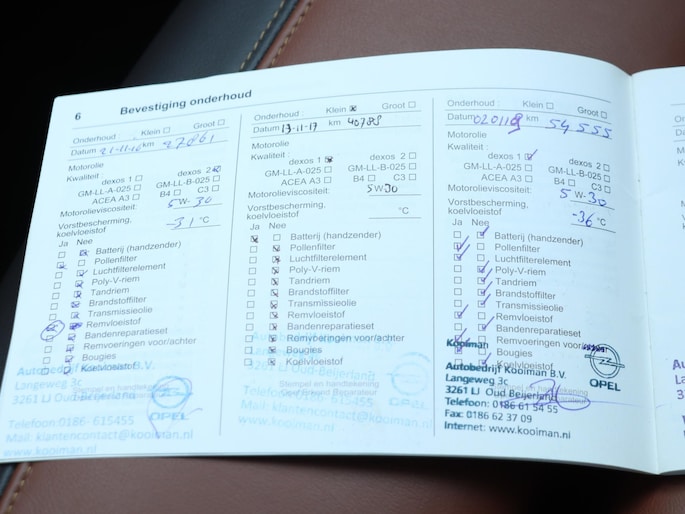 6 Bevestiging onderhoud
Onderhoud : Klein Groot
Datum 21-11-16 km
Motorolie
Kwaliteit :
dexos 1 dexos 2
GM-LL-A-025 GM-LL-B-025
ACEA A3 B4 C3
Motorolieviscositeit: 5 W- 30
Vorstbescherming,
koelvloeistof -31 °C
Ja Nee
Batterij (handzender)
Pollenfilter
Luchtfilterelement
Poly-V-riem
Tandriem
Brandstoffilter
Transmissieolie
Remvloeistof
Bandenreparatieset
Remvoeringen voor/achter
Bougies
Koelvloeistof
Autobedrijf B.V.
Langeweg 3c
Stempel en handtekening
3261 LJ Oud Beijerland
OPEL
Telefoon:0186-615455
Mail: klantencontact@kooiman.nl
www.kooiman.nl
Onderhoud : Klein Groot
Datum 13-11-17 km 40783
Motorolie
Kwaliteit :
dexos 1 dexos 2
GM-LL-A-025 GM-LL-B-025
ACEA A3 B4 C3
Motorolieviscositeit: 5W30
Vorstbescherming,
koelvloeistof °C
Ja Nee
Batterij (handzender)
Pollenfilter
Luchtfilterelement
Poly-V-riem
Tandriem
Brandstoffilter
Transmissieolie
Remvloeistof
Bandenreparatieset
Remvoeringen voor/achter
Bougies
Koelvloeistof
Stempel en handtekening
Opel Reparateur
OPEL
www.kooiman.nl
Onderhoud : Klein Groot
Datum 020119 km 54 555
Motorolie
Kwaliteit :
dexos 1 dexos 2
GM-LL-A-025 GM-LL-B-025
ACEA A3 B4 C3
Motorolieviscositeit: 5 W-30
Vorstbescherming,
koelvloeistof -36 °C
Ja Nee
Batterij (handzender)
Pollenfilter
Luchtfilterelement
Poly-V-riem
Tandriem
Brandstoffilter
Transmissieolie
Remvloeistof
Bandenreparatieset
Remvoeringen voor/achter
Bougies
Koelvloeistof
Kooiman
Autobedrijf Kooiman B.V.
Langeweg 3c
3261 LJ Oud Beijerland
Telefoon: 0186 61 54 55
Fax: 0186 62 37 09
Internet: www.kooiman.nl
OPEL